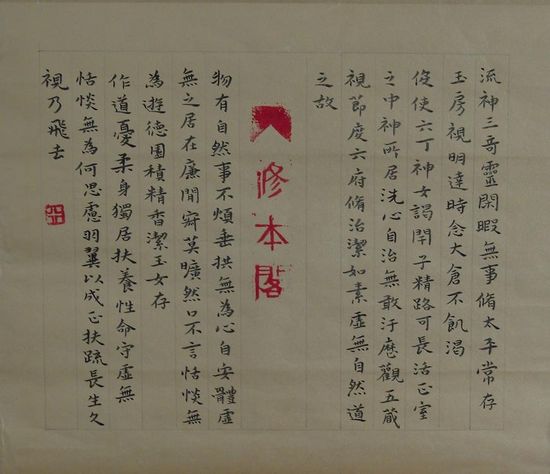 流神三奇靈閑暇無事脩太平常存
玉房視明達時念大倉不飢渴
役使六丁神女謁閉子精路可長活正室
之中神所居洗心自治無敢汙歷觀五藏
視節度六府脩治潔如素虛無自然道
之故
修本閣
物有自然事不煩垂拱無為心自安體虛
無之居在廉間寂莫曠然口不言恬惔無
為遊德園積精香潔玉女存
作道憂柔身獨居扶養性命守虛無
恬惔無為何思慮羽翼以成正扶疏長生久
視乃飛去